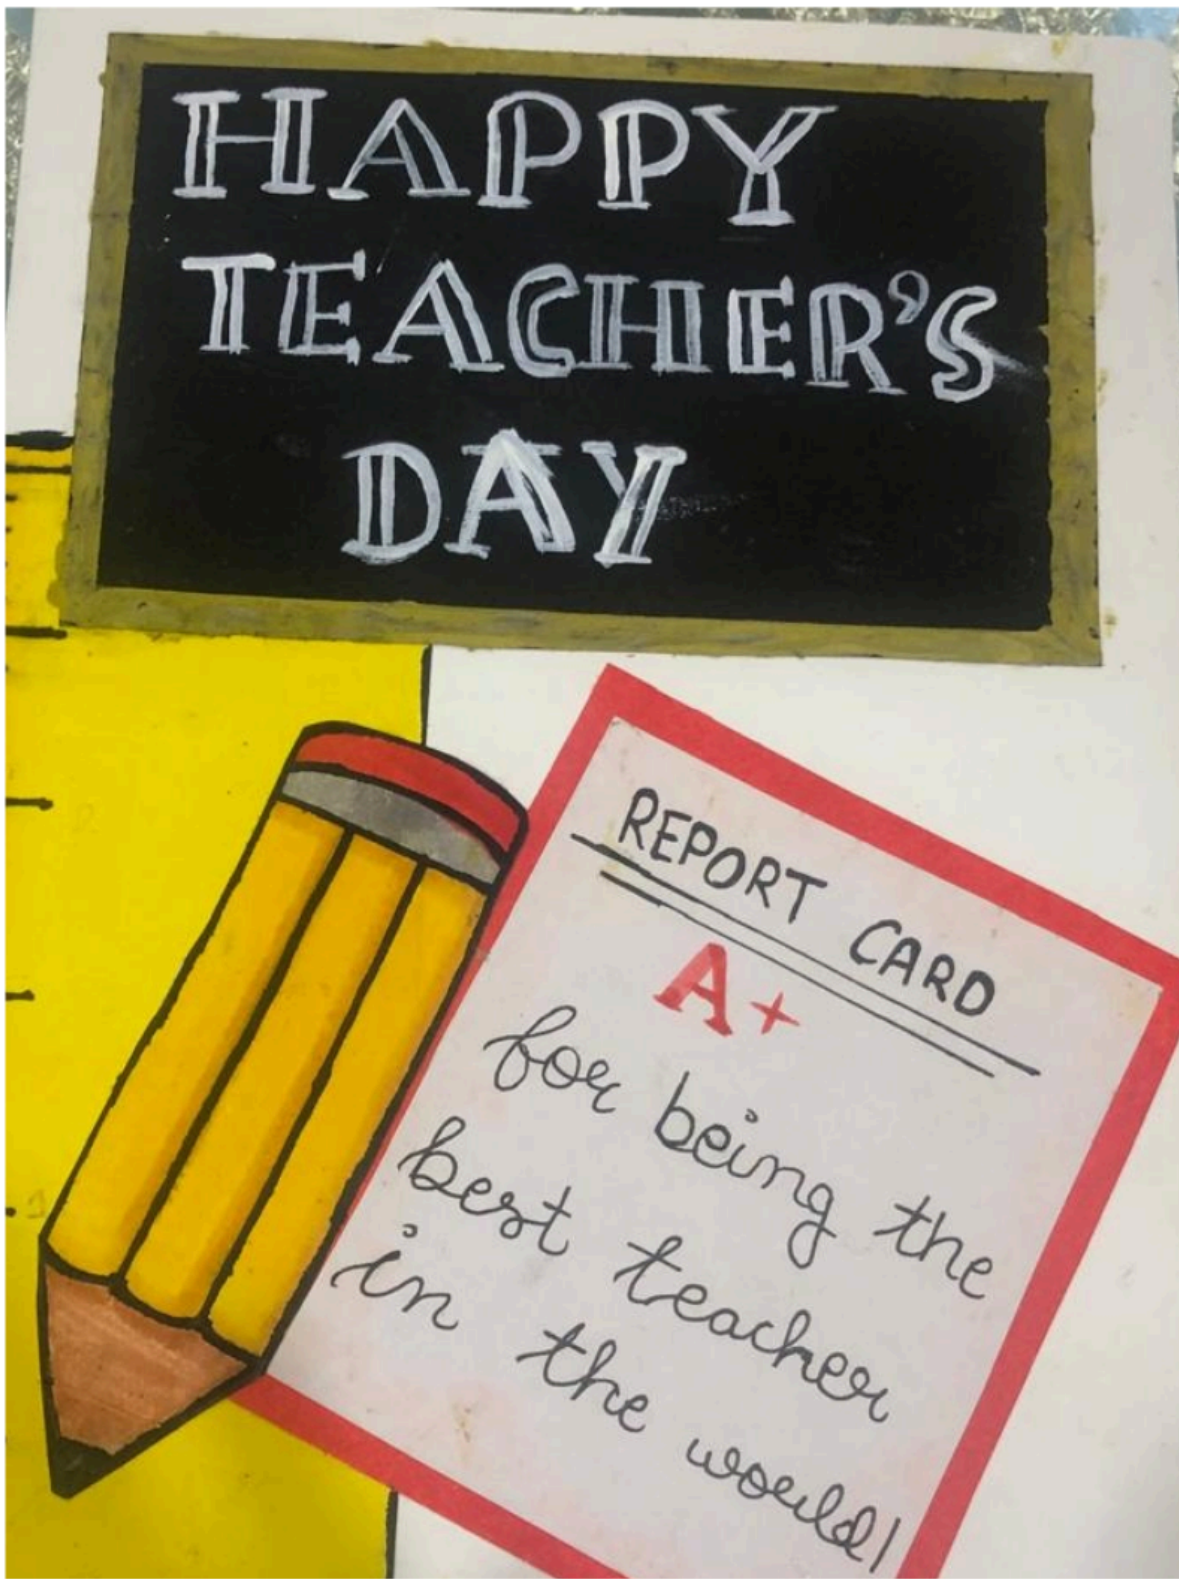 HAPPY
TEACHER'S
DAY
REPORT CARD
A+
for being the
best teacher
in the world!